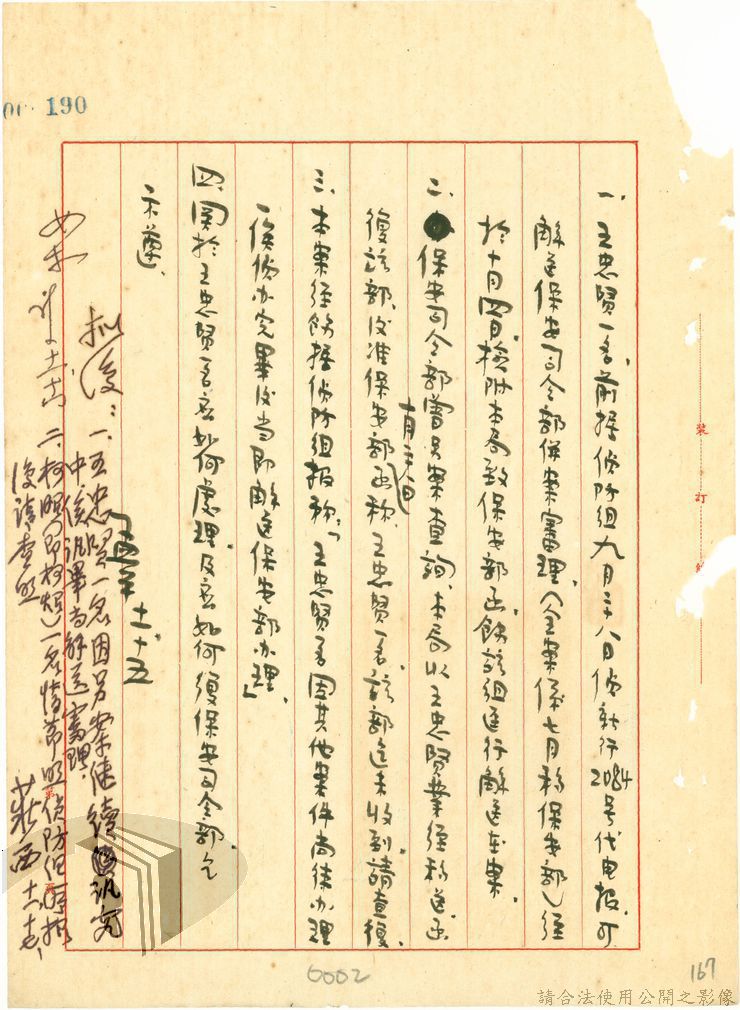 190
一、王忠賢一名,前据偵防組九月二十八日偵新行2084号代电报,可
解送保安司令部併案審理,(全案係七月移保安部)经
於十月四日检附本局致保安部函,飭該組逕行解送在案。
二、保安司令部曾另案查詢,本局以王忠賢業經移送函
復該部,後准保安部十月二十八日函称,王忠賢一名,該部迄未收到,請查復。
三、本案经飭据偵防組报称:「王忠賢一名因其他案件尚待办理,
俟偵办完畢後当即解送保安部办理」。
四、関於王忠賢一名应如何處理,及应如何復保安司令部,乞
示遵。
十一、十五
拟復:一、王忠賢一名因另案继續訊究
中,俟訊畢当解送審理。
二、柯明(即柯輝)一名情节
復請查照
裝訂線
0002
167
請合法使用公開之影像